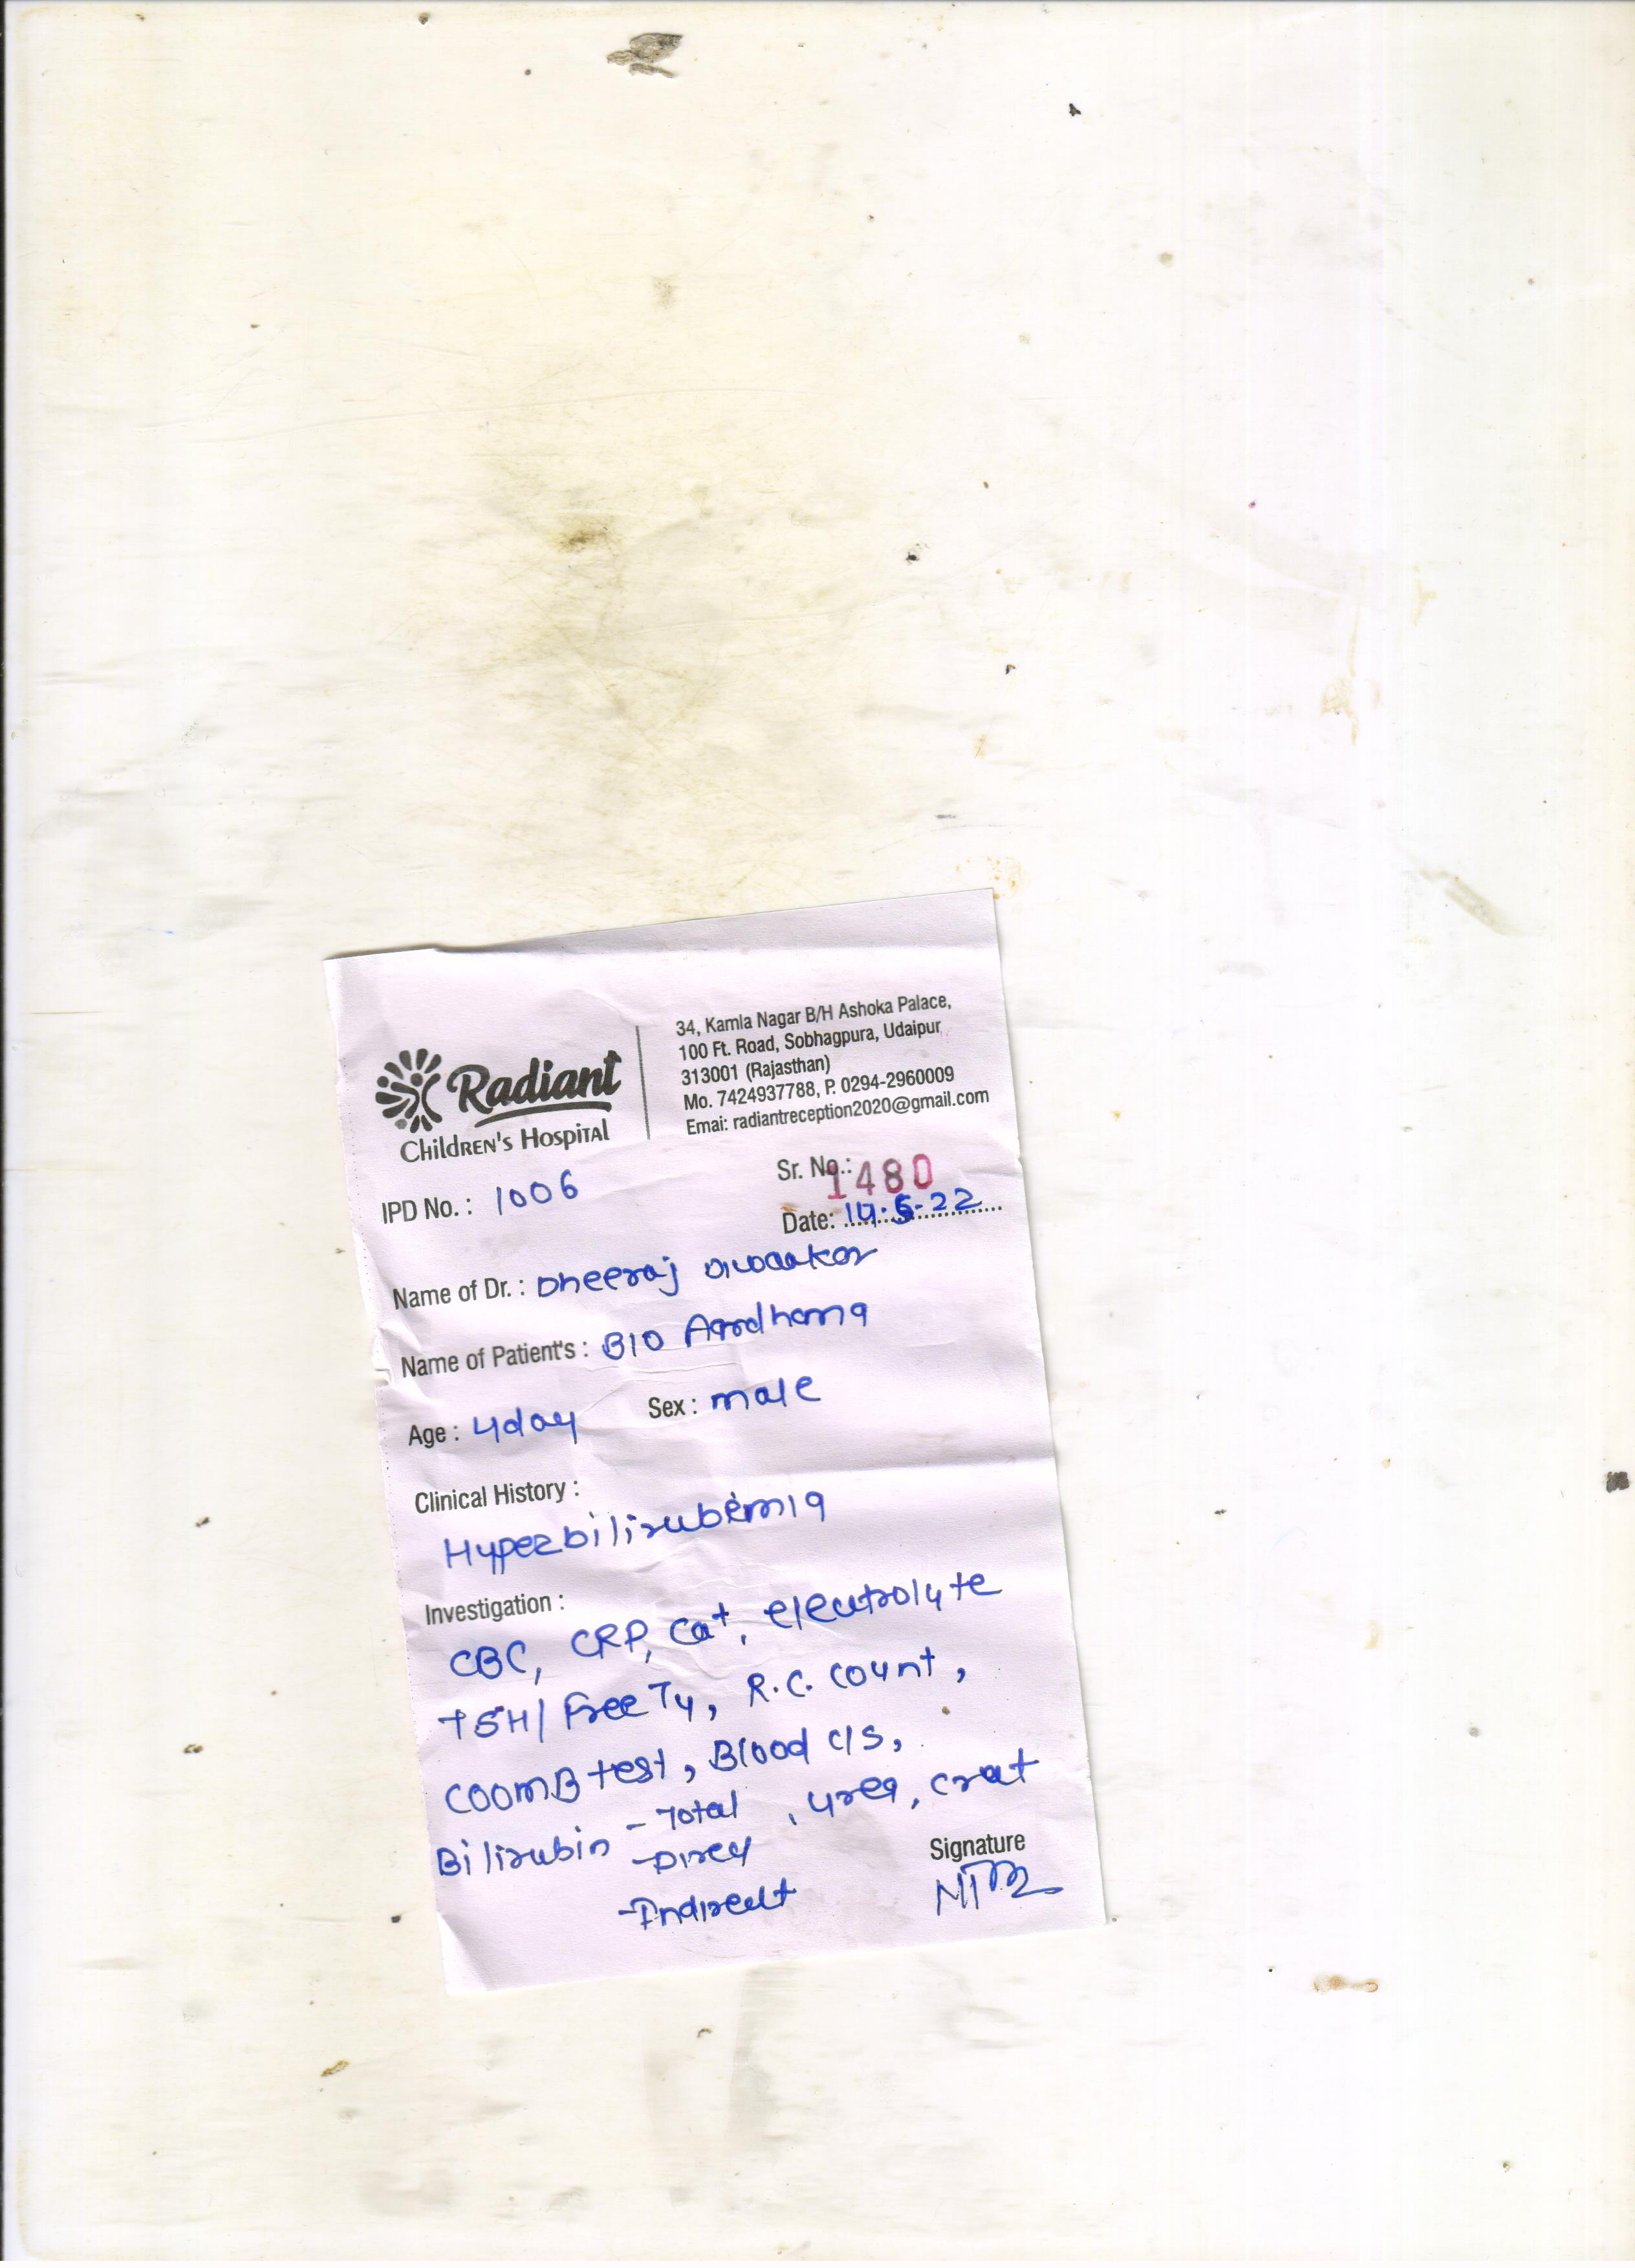 Radiant
Children's Hospital
34, Kamla Nagar B/H Ashoka Palace,
100 Ft. Road, Sobhagpura, Udaipur
313001 (Rajasthan)
Mo. 7424937788, P. 0294-2960009
Emai: radiantreception2020@gmail.com
IPD No. : 1006
Sr. No.: 1480
Date: 14.5.22
Name of Dr. : Dheeraj Diwaakar
Name of Patient's : B/O Aardhana
Age : 4day
Sex : male
Clinical History :
Hyperbilirubemia
Investigation :
CBC, CRP, Ca+, electrolyte
TSH/ Free T4, R.C. count,
COOMB test, Blood c/s,
Bilirubin - Total , urea, creat
- Direct
- Indirect
Signature